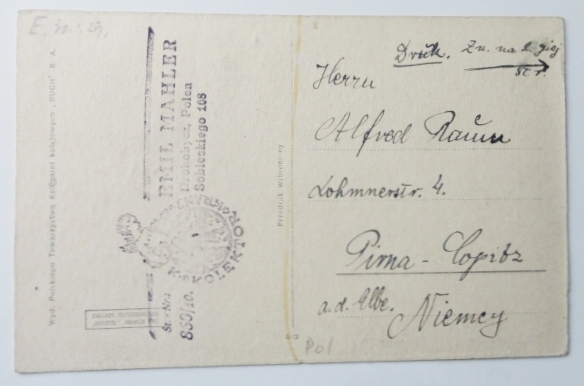 E. 30.1.29.
Wyd. Polskiego Towarzystwa Księgarni kolejowych „RUCH” S. A.
EMIL MAHLER
Drohobycz, Polen
Sobieskiego 108
830/10.
Przedruk wzbroniony
Druk. Zn. na
Herrn
Alfred Raum
Lohmnerstr. 4.
Pirna - Copitz
a. d. Elbe.
Niemcy
Pol